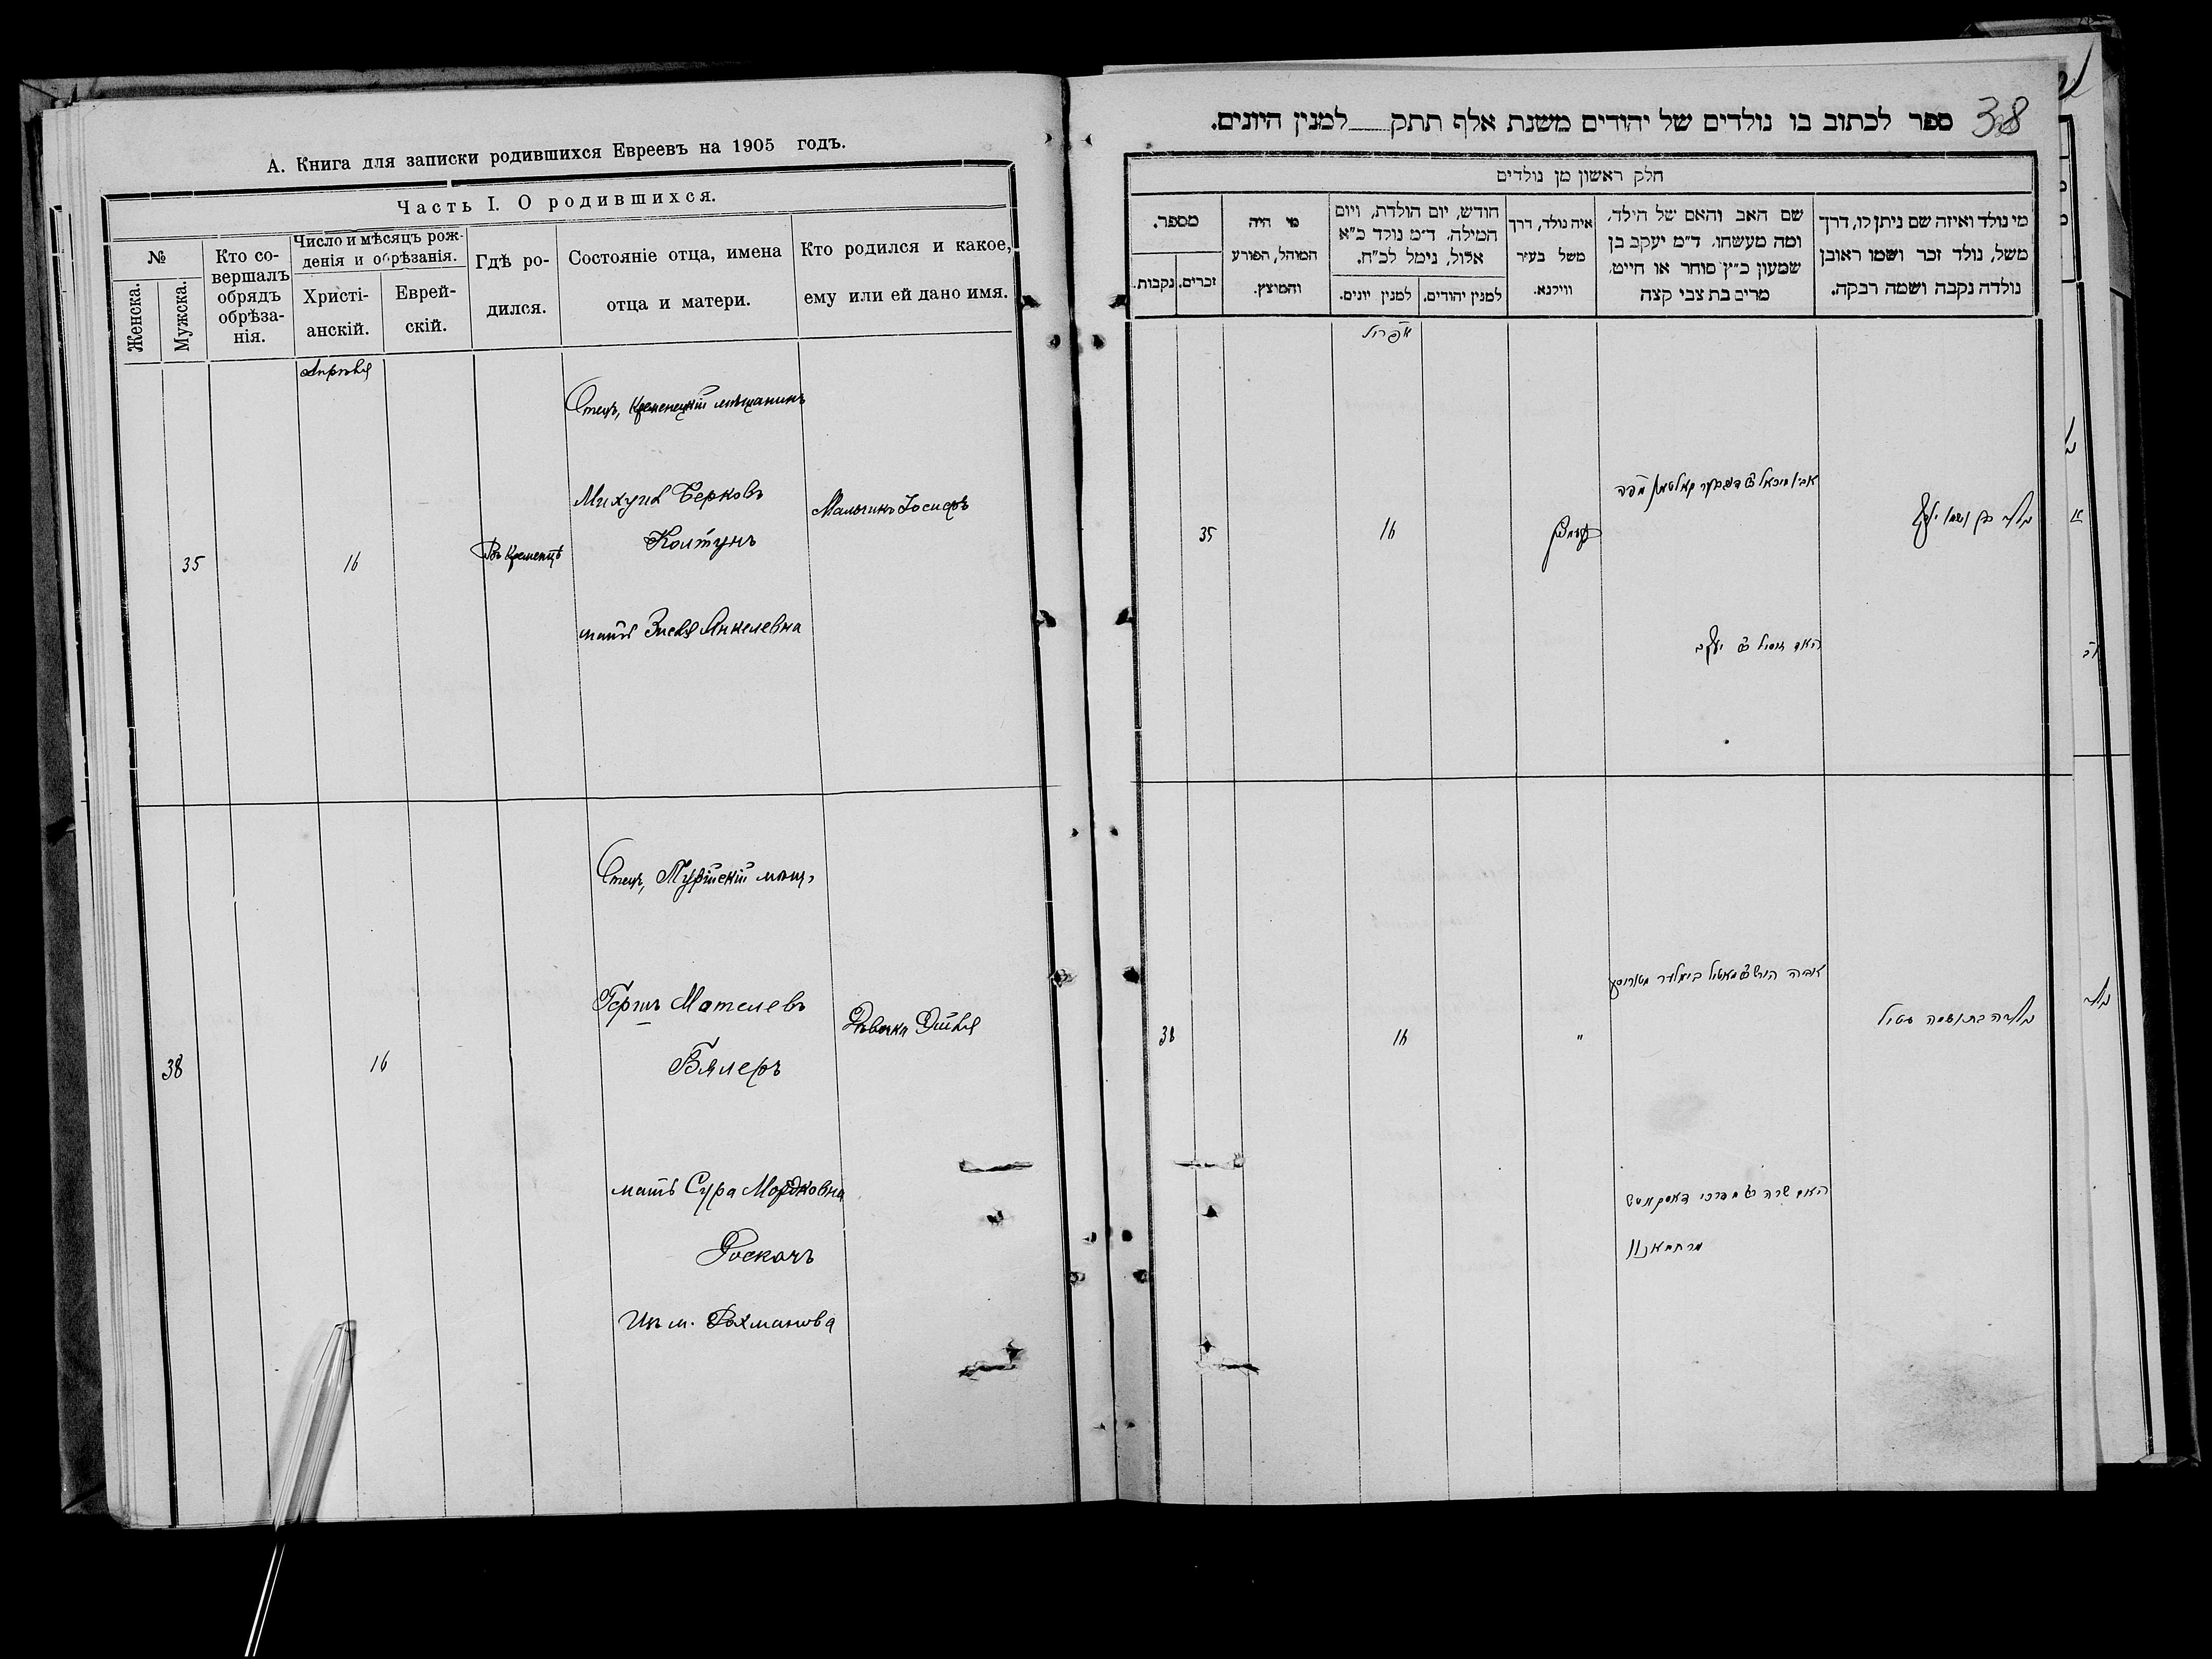 А. Книга для записки родившихся Евреевъ на 1905 годъ.
Часть I. О родившихся.
№
Женска.
Мужска.
Кто со-
вершалъ
обрядъ
обрѣза-
нія.
Число и мѣсяцъ рож-
денія и обрѣзанія.
Христі-
анскій.
Еврей-
скій.
Гдѣ ро-
дился.
Состояніе отца, имена
отца и матери.
Кто родился и какое,
ему или ей дано имя.
Апрѣля
Отецъ, Кременецкій мѣщанинъ
Михуил Берковъ
Мальчикъ Іосифъ
Колтунъ
35
16
Въ Кременцѣ
мать Зисля Янкелевна
Отецъ, Турійскій мѣщ.
Гершъ Мотелевъ
Дѣвочка Эйтля
Бялеръ
38
16
мать Сура Мордковна
Роскочъ
Изъ м. Рахманова
38
ספר לכתוב בו נולדים של יהודים משנת אלף תתק למנין היונים.
חלק ראשון מן נולדים
מספר.
נקבות.
זכרים.
מי היה
המוהל, הפורע
והמוצץ.
חודש, יום הולדת, ויום
המילה. ד״מ נולד כ״א
אלול, נימל לכ״ח.
למנין יונים.
למנין יהודים.
איה נולד, דרך
משל בעיר
ווילנא.
שם האב והאם של הילד,
ומה מעשהו. ד״מ יעקב בן
שמעון כ״ץ סוחר או חייט,
מרים בת צבי קצה
מי נולד ואיזה שם ניתן לו, דרך
משל, נולד זכר ושמו ראובן
נולדה נקבה ושמה רבקה.
אפריל
35
16
נולד בן ושמו יוסף
האם זיסיל יעקב
38
16
"
נולדה בת ושמה
האם שרה מרדכי